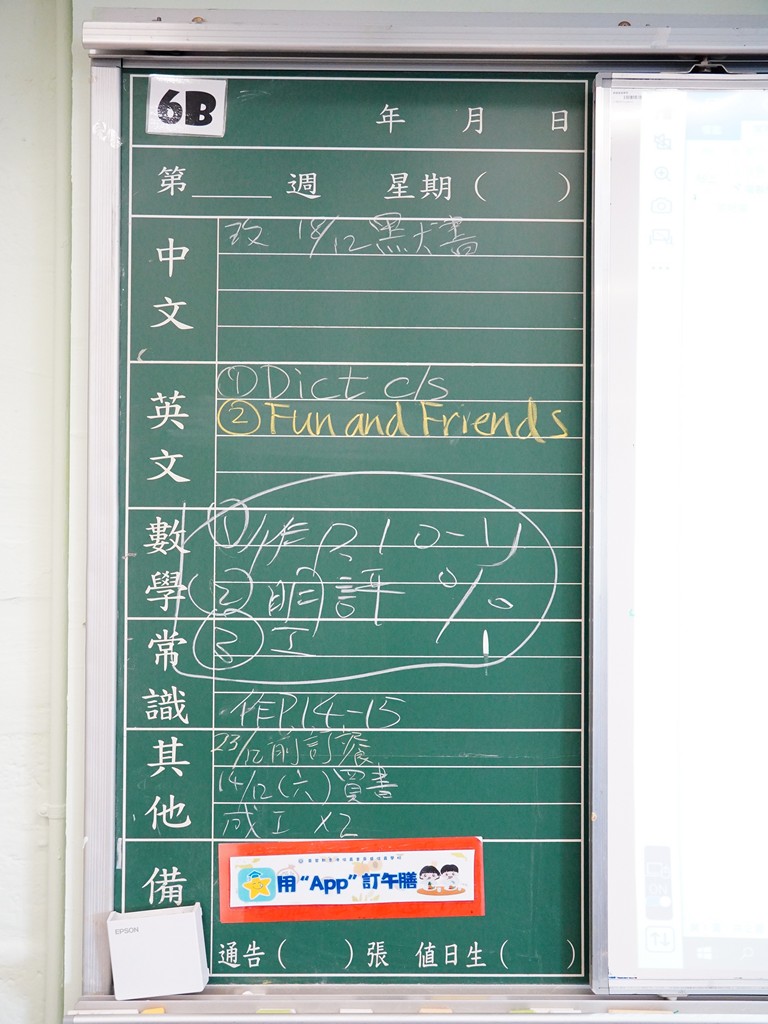 6B
年 月 日
第____週 星期( )
中文
改 18/12 黑犬書
英文
①Dict c/s
②Fun and Friends
數學
①作P.10-11
②明評 %
③工
常識
作P.14-15
其他
23/12前訂餐
14/12(六)買書
成工 x2
備
用“App”訂午膳
通告( )張 值日生( )
EPSON